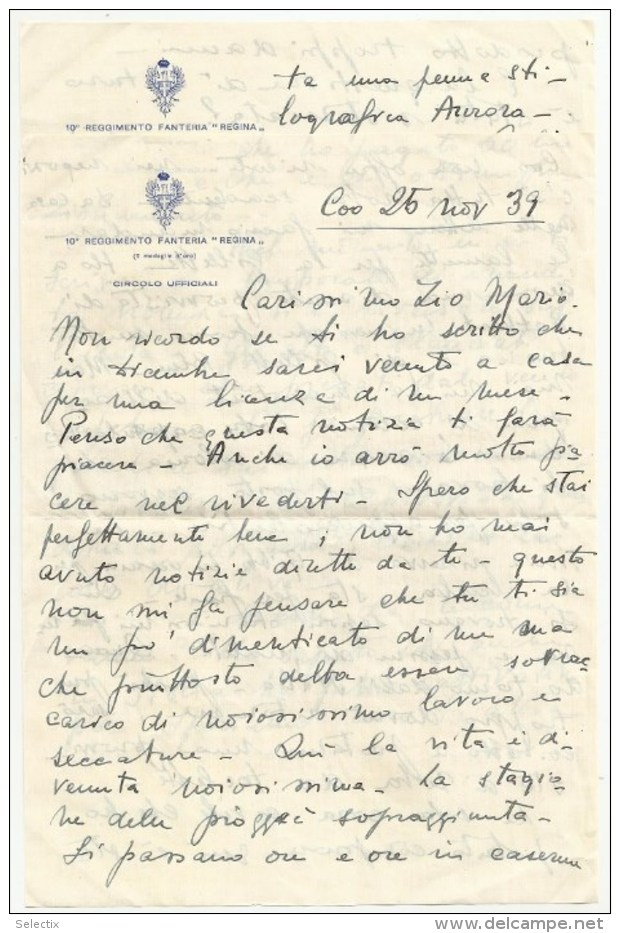 10° REGGIMENTO FANTERIA "REGINA"
ta una penna sti-
lografica Aurora -
10° REGGIMENTO FANTERIA "REGINA"
(3 medaglie d'oro)
CIRCOLO UFFICIALI
Coo 25 nov 39
Carissimo Zio Mario.
Non ricordo se ti ho scritto che
in dicembre sarei venuto a casa
per una licenza di un mese -
Penso che questa notizia ti farà
piacere - Anche io avrò molto pia
cere nel rivederti - Spero che stai
perfettamente bene ; non ho mai
avuto notizie dirette da te - questo
non mi fa pensare che tu ti sia
un po' dimenticato di me ma
che piuttosto debba essere sovrac
carico di noiosissimo lavoro e
seccature - Quì la vita è di-
venuta noiosissima - La stagio-
ne delle piogge è sopraggiunta -
Si passano ore e ore in caserma
Selectix
www.delcampe.net